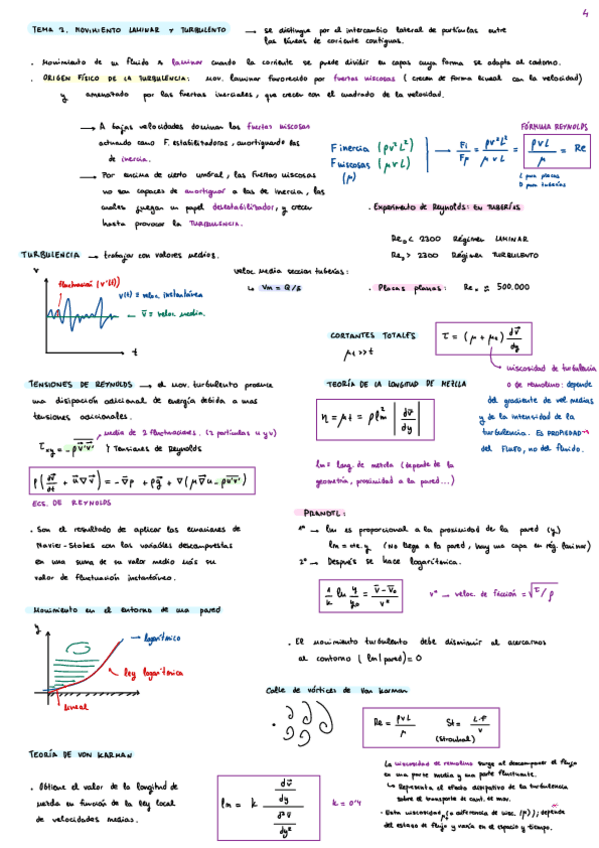 4
TEMA 2. MOVIMIENTO LAMINAR Y TURBULENTO → se distingue por el intercambio lateral de partículas entre
las líneas de corriente contiguas.
· Movimiento de un fluido es laminar cuando la corriente se puede dividir en capas cuya forma se adapta al contorno.
· ORIGEN FÍSICO DE LA TURBULENCIA: Mov. laminar favorecido por fuertas viscosas (crecen de forma lineal con la velocidad)
y amenatado por las fuertas inerciales, que crecen con el cuadrado de la velocidad.
→ A bajas velocidades dominan las fuertas viscosas
actuando como F. estabilitadoras, amortiguando las
de inercia.
→ Por encima de cierto umbral, las fuertas viscosas
no son capaces de amortiguar a las de inercia, las
cuales juegan un papel desestabilitador, y crecen
hasta provocar la TURBULENCIA.
FÓRMULA REYNOLDS
F inercia (ρv²L²)
F viscosas (μvL)
(μ)
→ Fi/Fμ = ρv²L²/μvL = ρvL/μ = Re
L para placas
D para tuberías
· Experimento de Reynolds: en TUBERÍAS
Re_D < 2300 Régimen LAMINAR
Re_D > 2300 Régimen TURBULENTO
· Placas planas: Re ≈ 500.000
TURBULENCIA → trabajar con valores medios.
v
fluctuación (v'(t))
v(t) = veloc. instantánea
v̄ = veloc. media.
t
veloc. media seccion tuberías:
↳ Vm = Q/S
CORTANTES TOTALES
μt >> t
τ = (μ + μt) dv̄/dy
viscosidad de turbulencia
o de remolino: depende
del gradiente de vel medias
y de la intensidad de la
turbulencia. Es PROPIEDAD
del FLUJO, no del fluido.
TENSIONES DE REYNOLDS → el mov. turbulento produce
una disipación adicional de energía debida a unas
tensiones adicionales.
media de 2 fluctuaciones. (2 partículas u y v)
τxy = -ρu'v' } Tensiones de Reynolds
ECS. DE REYNOLDS
· Son el resultado de aplicar las ecuaciones de
Navier-Stokes con las variables descompuestas
en una suma de su valor medio más su
valor de fluctuación instantáneo.
TEORÍA DE LA LONGITUD DE MEZCLA
η = μt = ρl²m |dv̄/dy|
lm = long. de mezcla (depende de la
geometría, proximidad a la pared...)
PRANDTL:
1º → lm es proporcional a la proximidad de la pared (y)
lm = cte.y (No llega a la pared, hay una capa en rég. laminar)
2º → Después se hace logarítmica.
1/k ln y/y₀ = (v̄ - v̄₀)/v*
v* → veloc. de fricción = √τ/ρ
Movimiento en el entorno de una pared
y
logarítmico
ley logarítmica
lineal
· El movimiento turbulento debe disminuir al acercarnos
al contorno (lm|pared) = 0
Calle de vórtices de Von Karman
Re = ρvL/μ St = L·f/v
(Strouhal)
TEORÍA DE VON KARMAN
· Obtiene el valor de la longitud de
mezcla en función de la ley local
de velocidades medias.
lm = k (dv̄/dy)/(d²v̄/dy²)
k = 0'4
La viscosidad de remolino surge al descomponer el flujo
en una parte media y una parte fluctuante.
↳ Representa el efecto disipativo de la turbulencia
sobre el transporte de cant. de mov.
· Esta viscosidad μt (a diferencia de visc. (μ)); depende
del estado de flujo y varía en el espacio y tiempo.